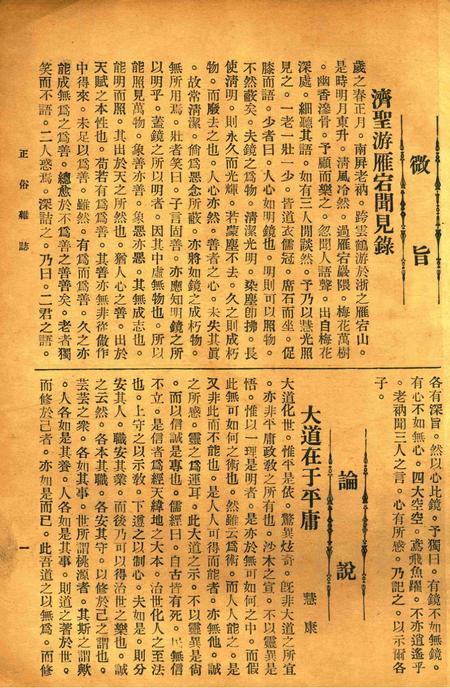 微旨
濟聖游雁宕聞見錄
歲之春正月。南屏老衲。跨雲鶴游於浙之雁宕山。
是時明月東升。清風冷然。過雁宕巖隈。梅花萬樹
。幽香滲骨。予顧而樂之。忽聞人語聲。出自梅花
深處。細聽其語。如有三人閒談然。予乃以慧光照
見之。一老一壯一少。皆道衣儒冠。席石而坐。促
膝而語。少者曰。人心如明鏡也。明則可以照物。
不然蔽矣。夫鏡之為物。清潔光明。染塵卽拂。長
使清明。則永久而光輝。若蒙塵不去。久之則成朽
物。而廢去之也。人心亦然。善者之心。未失其眞
。故常清潔。倘爲惡念所蔽。亦將如鏡之成朽物。
無所用焉。壯者笑曰。子言固善。亦應知明鏡之所
以明乎。蓋鏡之所以明者。因其中虛無物也。所以
能照見萬物。象善亦善。象惡亦惡。其無成志也。
能明而照。其出於天之所然也。猶人心之善。出於
天賦之本性也。苟若有爲爲善。其善亦無非從倣作
中得來。未足以爲善。雖然。有爲而爲善。久之亦
能成無爲之爲善。總愈於不爲善之善矣。老者獨
笑而不語。二人惑焉。深詰之。乃曰。二君之語。
各有深旨。然以心比鏡。予獨曰。有鏡不如無鏡。
有心不如無心。四大空空。鳶飛魚躍。不亦逍遙乎
。老衲聞三人之言。心有所感。乃記之。以示爾各
子。
論說
大道在于平庸
慧康
大道化世。惟平是依。驚異炫奇。旣非大道之所宜
。亦非平庸政敎之所有也。沙木之宣。不以靈異是
悟。惟以一理是明者。是亦於無可如何之中。而假
此無可如何之術也。然雖云爲術。而人人能之。是
又非此而不能也。是人人可得而能者。亦無他。誠
之所感。靈之爲運耳。此大道之示。不以靈異是尙
。而以信誠是專也。儒經曰。自古皆有死。民無信
不立。是信者爲經天緯地之大本。治世化人之至法
也。上守之以示敎。下遵之以制心。夫如是。則分
安其人。職安其業。而後乃可以得治世之樂也。誠
之云然。各本其職。各安其守。以修於己之謂也。
芸芸之衆。各如其事。世所謂桃源者。其斯之謂歟
。人各如是其養。人各如是其事。則道之著於世。
而修於己者。亦如是而已。此吾道之以無爲。而修
正俗雜誌
一